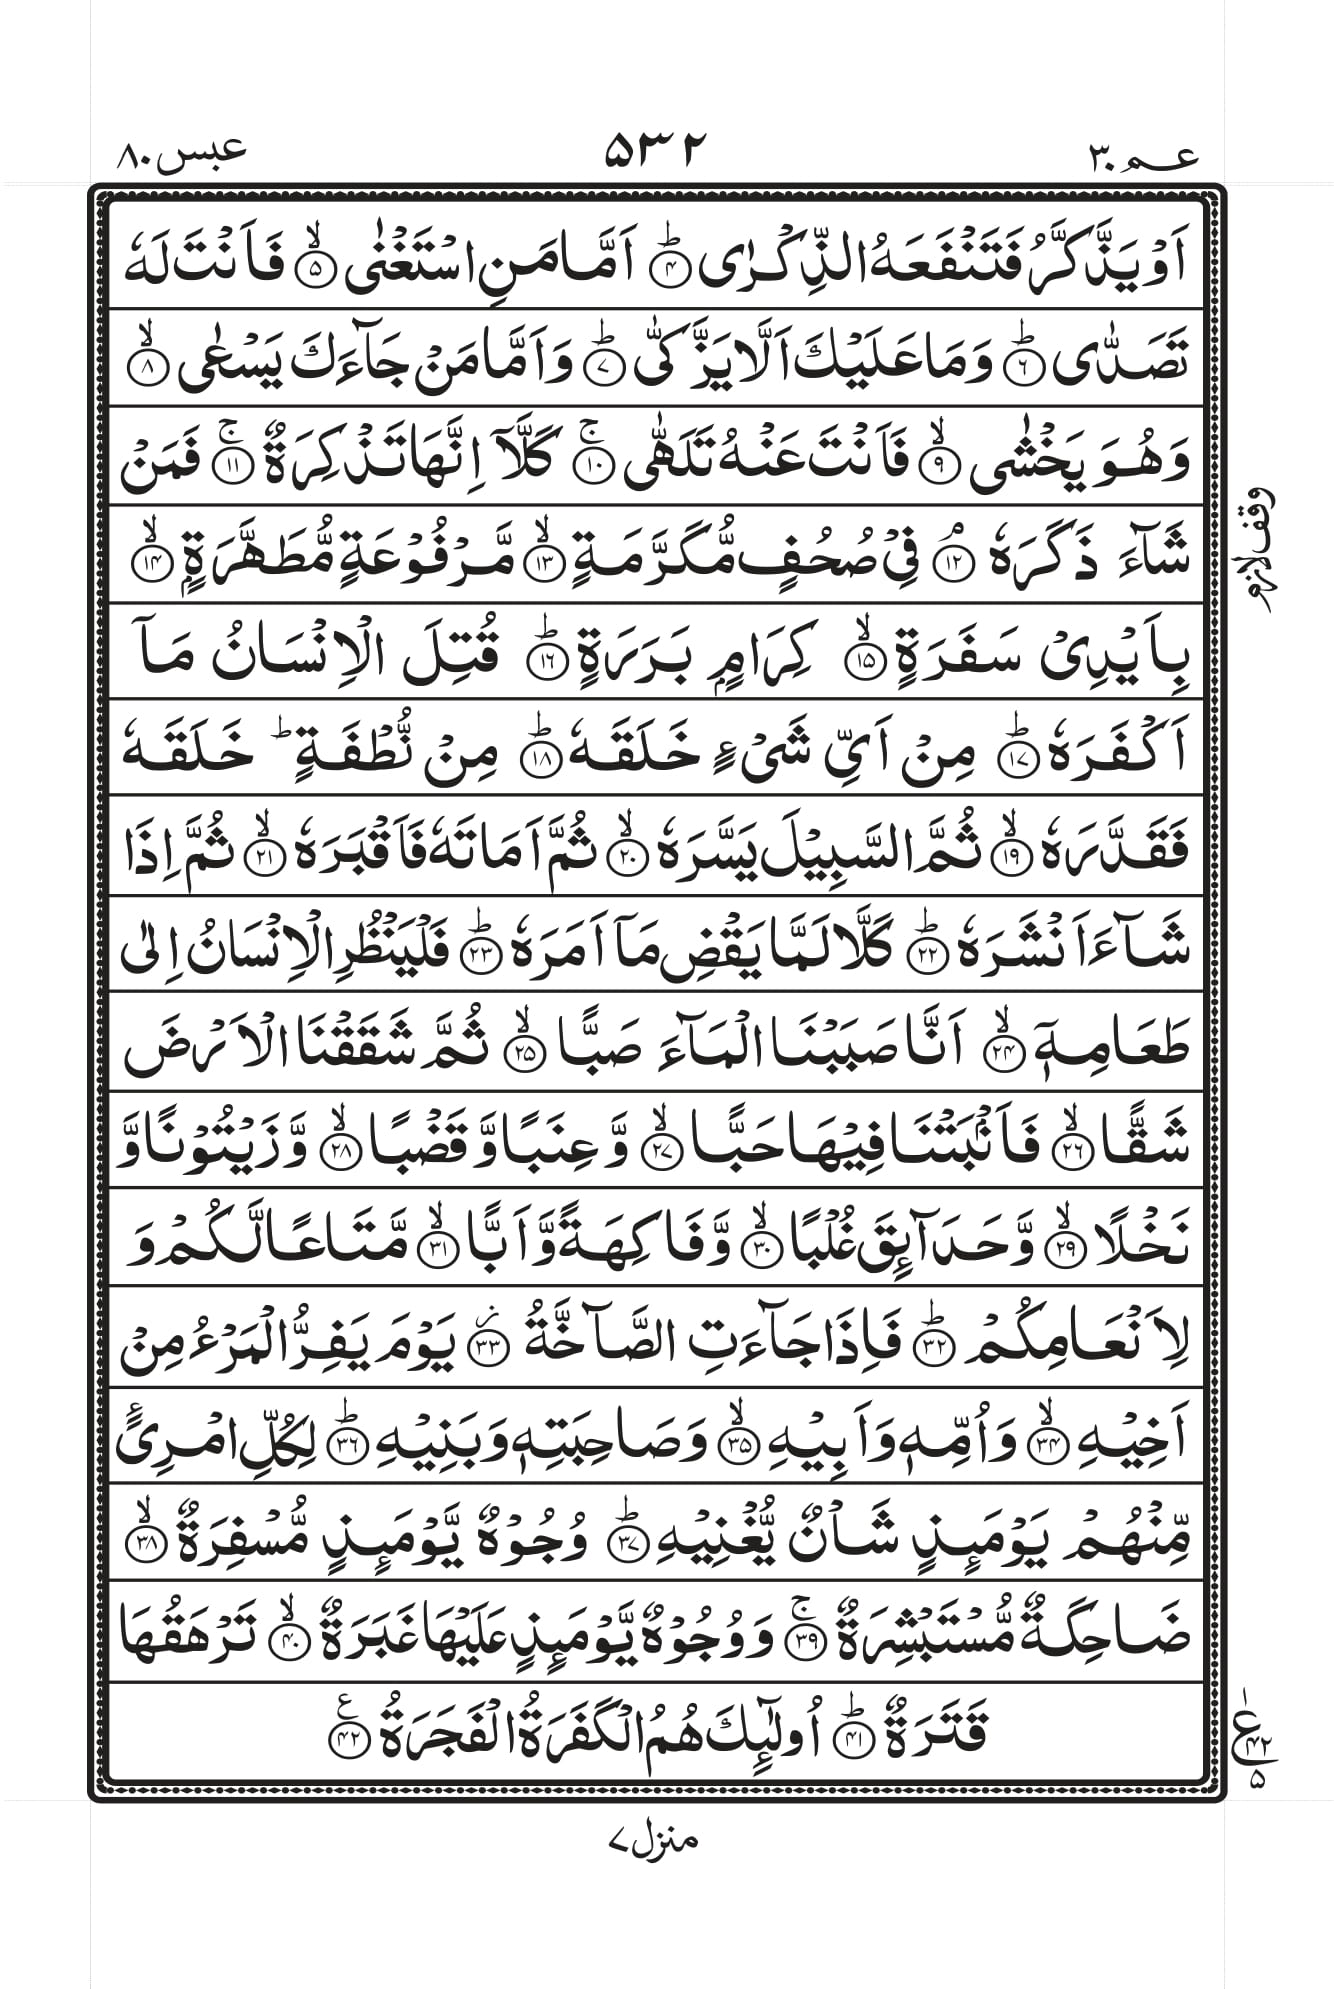 عـم ٣٠ ٥٣٢ عبس ٨٠
اَوْ يَذَّكَّرُ فَتَنْفَعَهُ الذِّكْرٰى ؕ﴿۴﴾ اَمَّا مَنِ اسْتَغْنٰى ۙ﴿۵﴾ فَاَنْتَ لَهٗ
تَصَدّٰى ؕ﴿۶﴾ وَمَا عَلَيْكَ اَلَّا يَزَّكّٰى ؕ﴿۷﴾ وَاَمَّا مَنْ جَآءَكَ يَسْعٰى ۙ﴿۸﴾
وَهُوَ يَخْشٰى ۙ﴿۹﴾ فَاَنْتَ عَنْهُ تَلَهّٰى ۚ﴿۱۰﴾ كَلَّاۤ اِنَّهَا تَذْكِرَةٌ ۚ﴿۱۱﴾ فَمَنْ
شَآءَ ذَكَرَهٗ ۘ﴿۱۲﴾ فِيْ صُحُفٍ مُّكَرَّمَةٍ ۙ﴿۱۳﴾ مَّرْفُوْعَةٍ مُّطَهَّرَةٍۭ ۙ﴿۱۴﴾
وقف لازم
بِاَيْدِيْ سَفَرَةٍ ۙ﴿۱۵﴾ كِرَامٍۭ بَرَرَةٍ ؕ﴿۱۶﴾ قُتِلَ الْاِنْسَانُ مَاۤ
اَكْفَرَهٗ ؕ﴿۱۷﴾ مِنْ اَيِّ شَيْءٍ خَلَقَهٗ ؕ﴿۱۸﴾ مِنْ نُّطْفَةٍ ؕ خَلَقَهٗ
فَقَدَّرَهٗ ۙ﴿۱۹﴾ ثُمَّ السَّبِيْلَ يَسَّرَهٗ ۙ﴿۲۰﴾ ثُمَّ اَمَاتَهٗ فَاَقْبَرَهٗ ۙ﴿۲۱﴾ ثُمَّ اِذَا
شَآءَ اَنْشَرَهٗ ؕ﴿۲۲﴾ كَلَّا لَمَّا يَقْضِ مَاۤ اَمَرَهٗ ؕ﴿۲۳﴾ فَلْيَنْظُرِ الْاِنْسَانُ اِلٰى
طَعَامِهٖۤ ۙ﴿۲۴﴾ اَنَّا صَبَبْنَا الْمَآءَ صَبًّا ۙ﴿۲۵﴾ ثُمَّ شَقَقْنَا الْاَرْضَ
شَقًّا ۙ﴿۲۶﴾ فَاَنْۢبَتْنَا فِيْهَا حَبًّا ۙ﴿۲۷﴾ وَّعِنَبًا وَّقَضْبًا ۙ﴿۲۸﴾ وَّزَيْتُوْنًا وَّ
نَخْلًا ۙ﴿۲۹﴾ وَّحَدَآئِقَ غُلْبًا ۙ﴿۳۰﴾ وَّفَاكِهَةً وَّاَبًّا ۙ﴿۳۱﴾ مَّتَاعًا لَّكُمْ وَ
لِاَنْعَامِكُمْ ؕ﴿۳۲﴾ فَاِذَا جَآءَتِ الصَّآخَّةُ ۫﴿۳۳﴾ يَوْمَ يَفِرُّ الْمَرْءُ مِنْ
اَخِيْهِ ۙ﴿۳۴﴾ وَاُمِّهٖ وَاَبِيْهِ ۙ﴿۳۵﴾ وَصَاحِبَتِهٖ وَبَنِيْهِ ؕ﴿۳۶﴾ لِكُلِّ امْرِئٍ
مِّنْهُمْ يَوْمَئِذٍ شَاْنٌ يُّغْنِيْهِ ؕ﴿۳۷﴾ وُجُوْهٌ يَّوْمَئِذٍ مُّسْفِرَةٌ ۙ﴿۳۸﴾
ضَاحِكَةٌ مُّسْتَبْشِرَةٌ ۚ﴿۳۹﴾ وَوُجُوْهٌ يَّوْمَئِذٍ عَلَيْهَا غَبَرَةٌ ۙ﴿۴۰﴾ تَرْهَقُهَا
قَتَرَةٌ ؕ﴿۴۱﴾ اُولٰٓئِكَ هُمُ الْكَفَرَةُ الْفَجَرَةُ ﴿۴۲﴾ ع
۱ ع ۴۲ ۵
منزل ۷